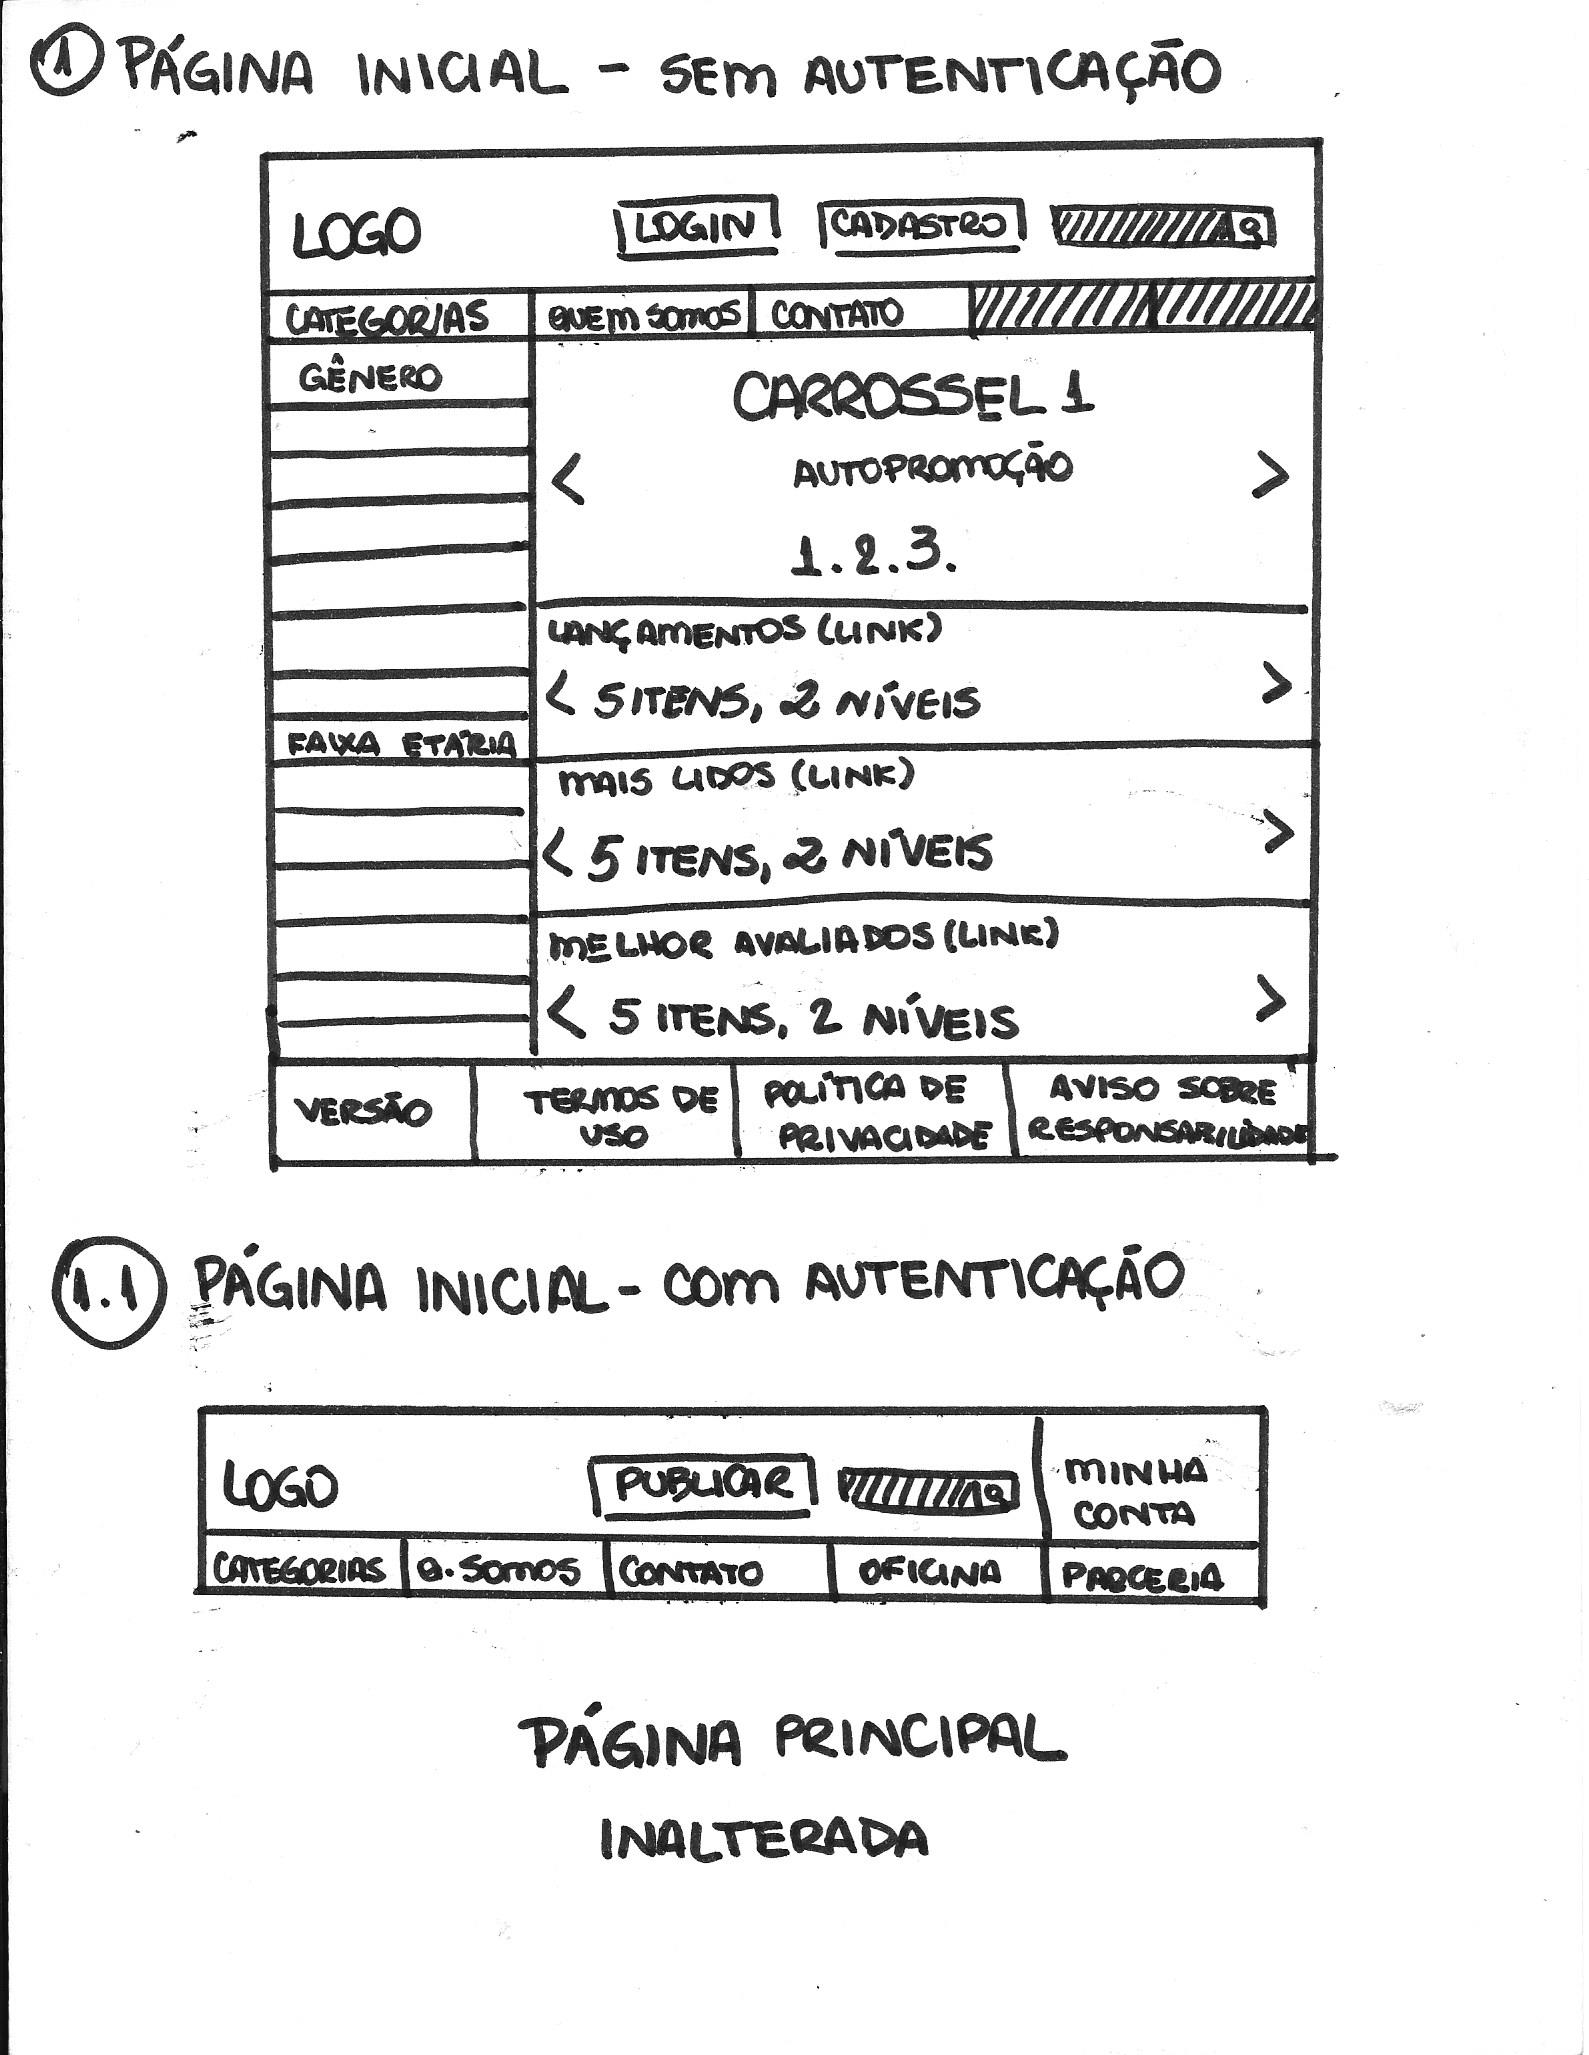 1 PÁGINA INICIAL - SEM AUTENTICAÇÃO
LOGO LOGIN CADASTRO
CATEGORIAS QUEM SOMOS CONTATO
GÊNERO
CARROSSEL 1
< AUTOPROMOÇÃO >
1.2.3.
LANÇAMENTOS (LINK)
< 5 ITENS, 2 NÍVEIS >
FAIXA ETÁRIA
MAIS LIDOS (LINK)
< 5 ITENS, 2 NÍVEIS >
MELHOR AVALIADOS (LINK)
< 5 ITENS, 2 NÍVEIS >
VERSÃO
TERMOS DE
USO
POLÍTICA DE
PRIVACIDADE
AVISO SOBRE
RESPONSABILIDADE
1.1 PÁGINA INICIAL - COM AUTENTICAÇÃO
LOGO PUBLICAR
MINHA
CONTA
CATEGORIAS Q. SOMOS CONTATO OFICINA PARCERIA
PÁGINA PRINCIPAL
INALTERADA